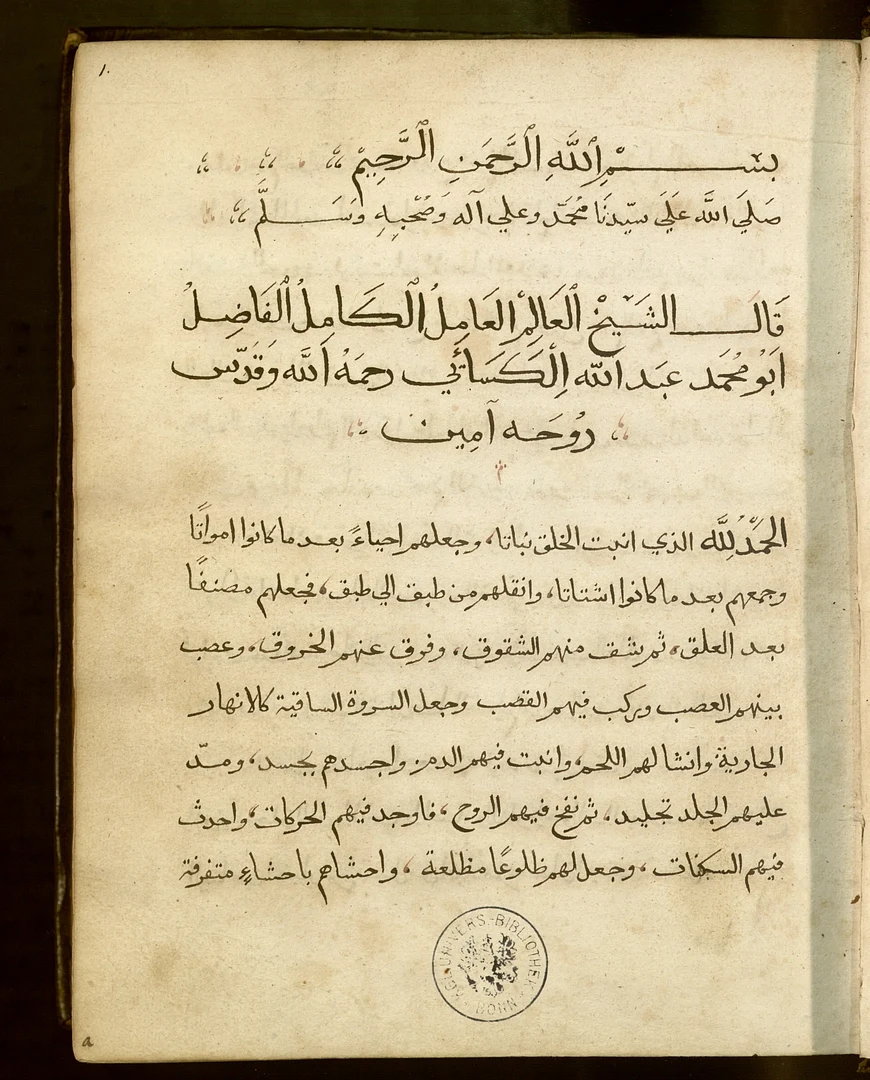 1.
بِسْمِ اللَّهِ الرَّحْمَنِ الرَّحِيمِ
صَلَيَ اللَّه عَلَيَ سيّدنَا مُحَمّد وعلي آله وَصَحْبِهِ وَسَلَّم
قَالَ الشَيْخْ العَالِمْ العَامِلُ الْكَامِلُ الْفَاضِلُ
اَبُو مُحَمَد عبَد اللّه الْكَسَائي رحمَهُ اَللَّه وَقَدّس
رُوُحَه آمِين
م
الحَمْدُ لِلَّه الذي انبت الخلق نباتا، وجعلهم احياءً بعد ما كانوا امواتًا
وجمعهم بعد ما كانوا اشتاتا، وانقلهم من طبق الي طبق، فجعلهم مصنفًا
بعد العلق، ثم شف منهم الشقوق، وفرق عنهم الخروق، وعصب
بينهم العصب وبركب فيهم القصب وجعل السروة الساقية كالانهار
الجارية، وانشا لهم اللحم، وانبت فيهم الدمن واجسدهم بجسد، ومدّ
عليهم الجلد تجليد، ثم نفخ فيهم الروح، فاوجد فيهم الحركات، واحدث
فيهم السكنات، وجعل لهم ظلوعًا مظلعة، واحشاهم باحشاءٍ متفرقة
UNIVERS.-BIBLIOTHEK BONN
a